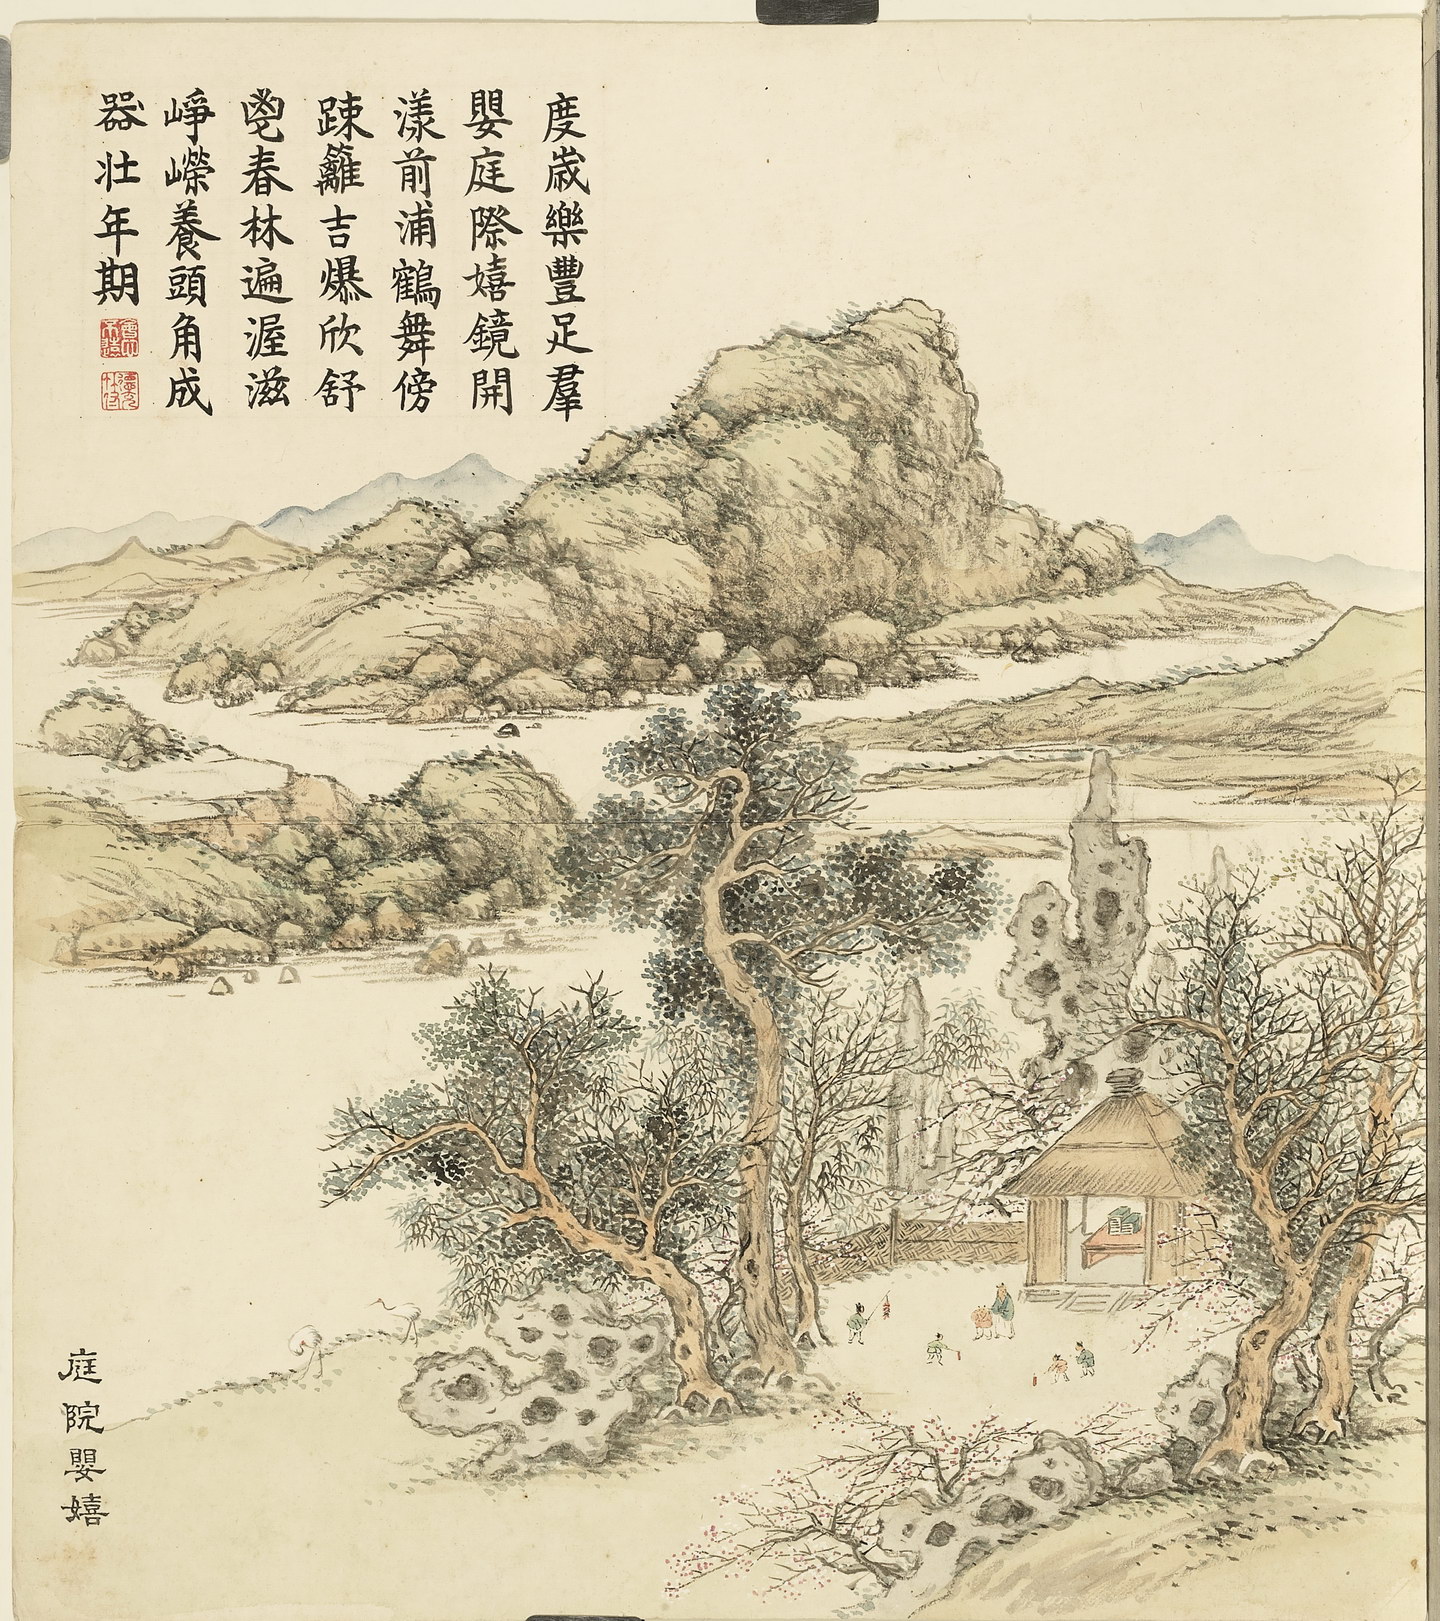 度歲樂豐足羣
嬰庭際嬉鏡開
漾前浦鶴舞傍
踈籬吉爆欣舒
鬯春林遍渥滋
崢嶸養頭角成
器壯年期
庭院嬰嬉